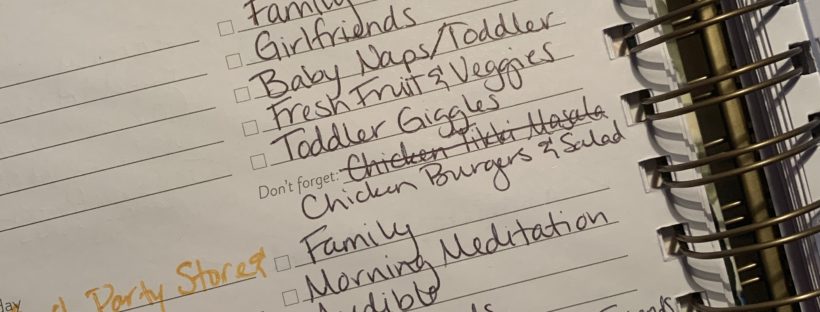 Family
Girlfriends
Baby Naps/Toddler
Fresh Fruit & Veggies
Toddler Giggles
Don't forget: Chicken Tikki Masala
Chicken Burgers & Salad
Family
Party Stores
Morning Meditation
day
Audible